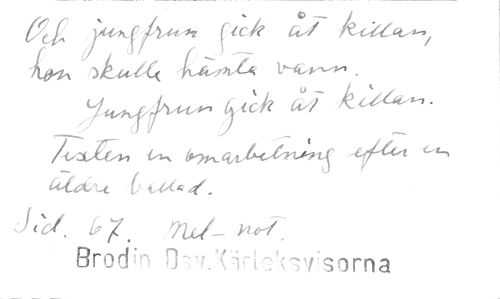 Och jungfrun gick åt killan,
hon skulle hämta vann.
Jungfrun gick åt killan.
Texten en omarbetning efter en
äldre ballad.
Sid. 67. Mel-not.
Brodin Dsv.Kärleksvisorna